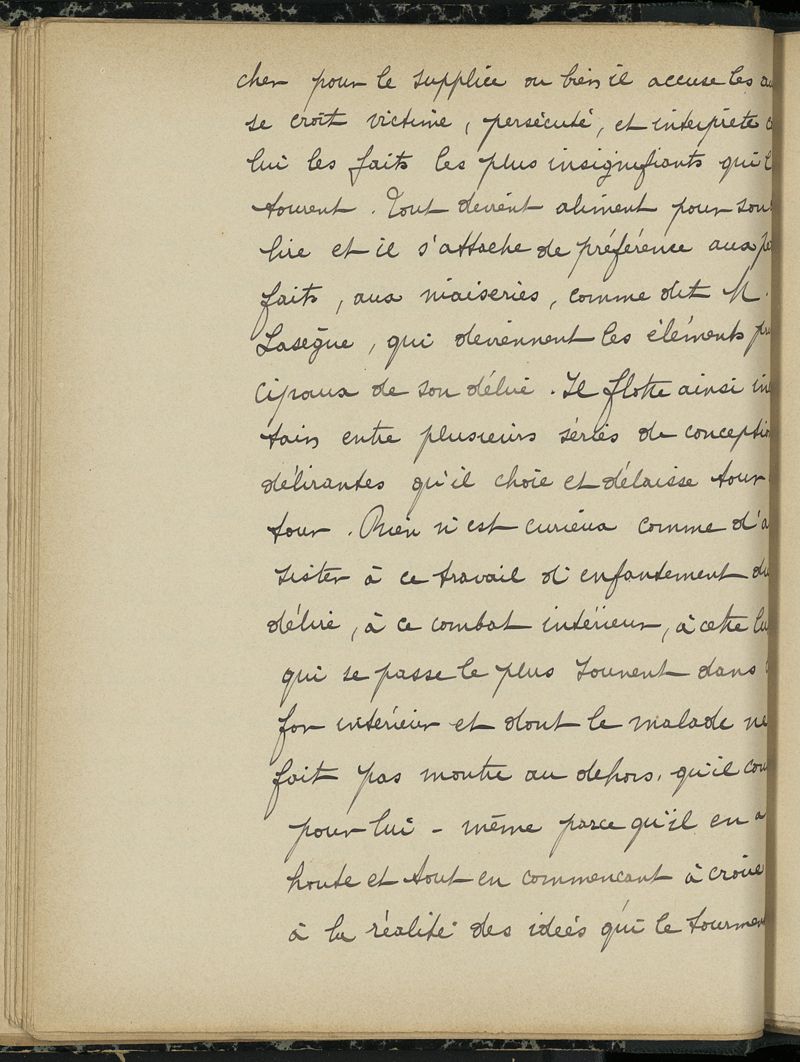 cher pour le supplice ou bien il accuse les
se croit victime, persécuté, et interprète
lui les faits les plus insignifiants qui l
tourent. Tout devient aliment pour son
lire et il s'attache de préférence aux
faits, aux niaiseries, comme dit M.
Lasègue, qui deviennent les éléments
cipaux de son délire. Il flotte ainsi in
tain entre plusieurs séries de conceptio
délirantes qu'il choie et délaisse tour
tour. Rien n'est curieux comme d'a
sister à ce travail d'enfantement du
délire, à ce combat intérieur, à cette lu
qui se passe le plus souvent dans
for intérieur et dont le malade ne
fait pas montre au dehors, qu'il con
pour lui-même parce qu'il en a
honte et tout en commencant à croire
à la réalité des ideés qui le tourmen